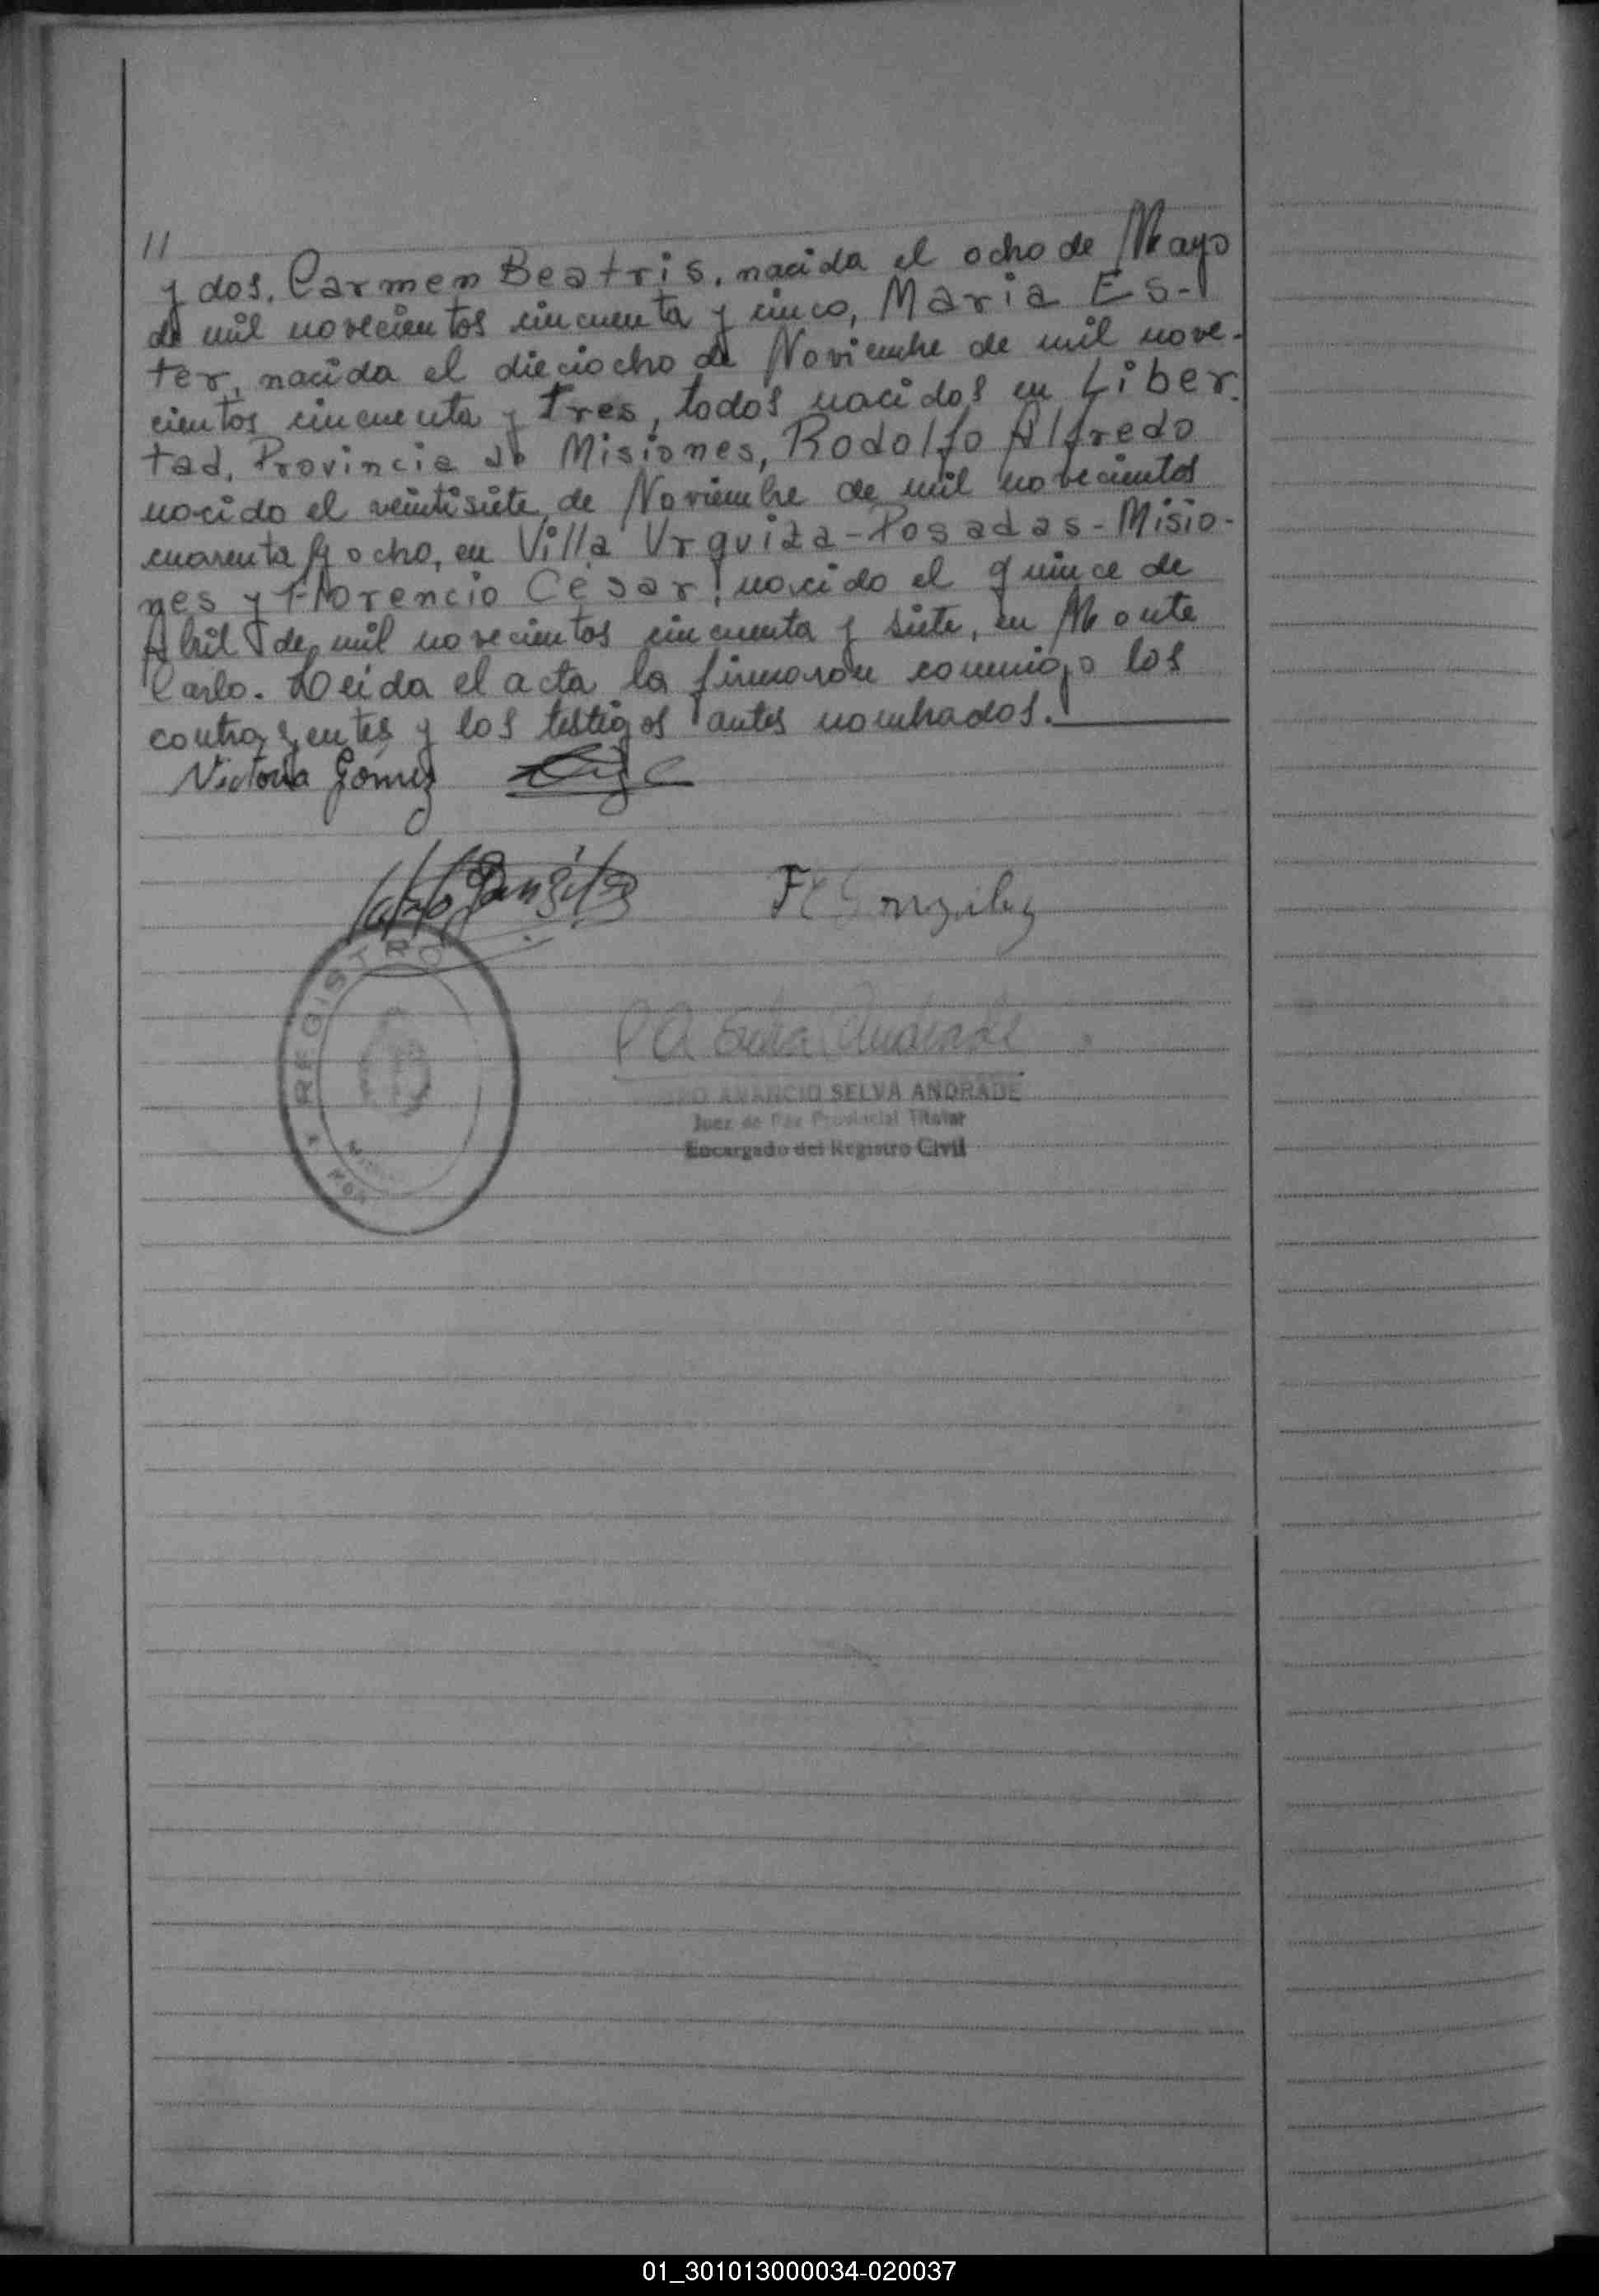 //
y dos, Carmen Beatris, nacida el ocho de Mayo
de mil novecientos cincuenta y cinco, Maria Es-
ter, nacida el dieciocho de Noviembre de mil nove-
cientos cincuenta y tres, todos nacidos en Liber-
tad, Provincia de Misiones, Rodolfo Alfredo
nacido el veintisiete de Noviembre de mil novecientos
cuarenta y ocho, en Villa Urquiza-Posadas-Misio-
nes y Florencio César, nacido el quince de
Abril de mil novecientos cincuenta y siete, en Monte
Carlo. Leida el acta la firmaron conmigo los
contrayentes y los testigos antes nombrados.
Victoria Gómez
F C Gonzalez
P A Selva Andrade
AMANCIO SELVA ANDRADE
Juez de Paz Provincial Titular
Encargado del Registro Civil
REGISTRO
01_301013000034-020037